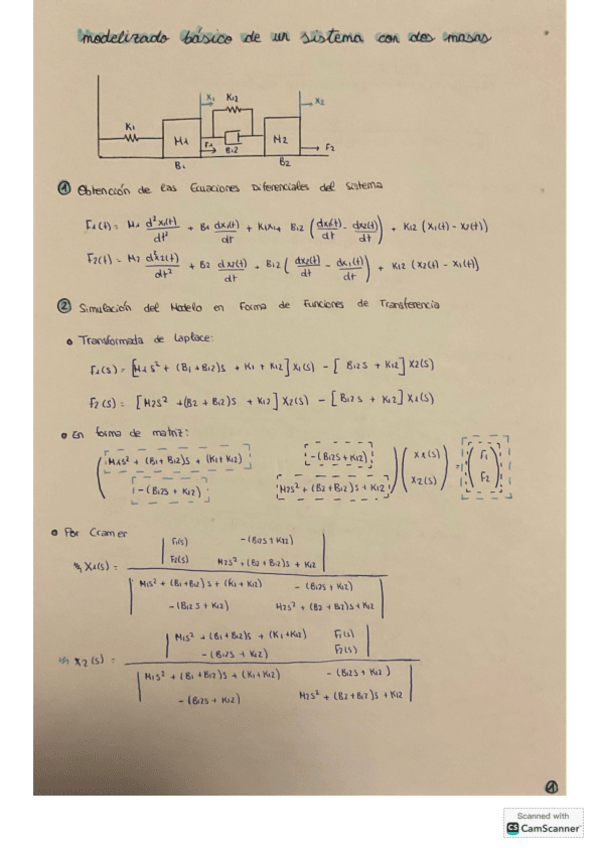 modelizado básico de un sistema con dos masas
X1 K12 X2
K1
M1 F1 B12 M2 F2
B1 B2
① Obtención de las Ecuaciones Diferenciales del Sistema
F1(t) = M1 d²x1(t)/dt² + B1 dx1(t)/dt + K1X1+ B12 (dx1(t)/dt - dx2(t)/dt) + K12 (X1(t) - X2(t))
F2(t) = M2 d²x2(t)/dt² + B2 dx2(t)/dt + B12 (dx2(t)/dt - dx1(t)/dt) + K12 (X2(t) - X1(t))
② Simulación del Modelo en Forma de Funciones de Transferencia
• Transformada de Laplace:
F1(s) = [M1s² + (B1+B12)s + K1 + K12] X1(s) - [B12s + K12] X2(s)
F2(s) = [M2s² + (B2 + B12)s + K12] X2(s) - [B12s + K12] X1(s)
• En forma de matriz:
M1s² + (B1+ B12)s + (K1+ K12) -(B12s + K12) X1(s) = F1
-(B12s + K12) M2s² + (B2 + B12)s + K12 X2(s) F2
• Por Cramer
F1(s) -(B12s + K12)
F2(s) M2s² + (B2+ B12)s + K12
X1(s) =
M1s² + (B1+B12)s + (K1 + K12) -(B12s + K12)
-(B12s + K12) M2s² + (B2 + B12)s + K12
M1s² + (B1+B12)s + (K1+K12) F1(s)
-(B12s + K12) F2(s)
X2(s) =
M1s² + (B1+B12)s + (K1+K12) -(B12s + K12)
-(B12s + K12) M2s² + (B2+B12)s + K12
1
Scanned with
CS CamScanner